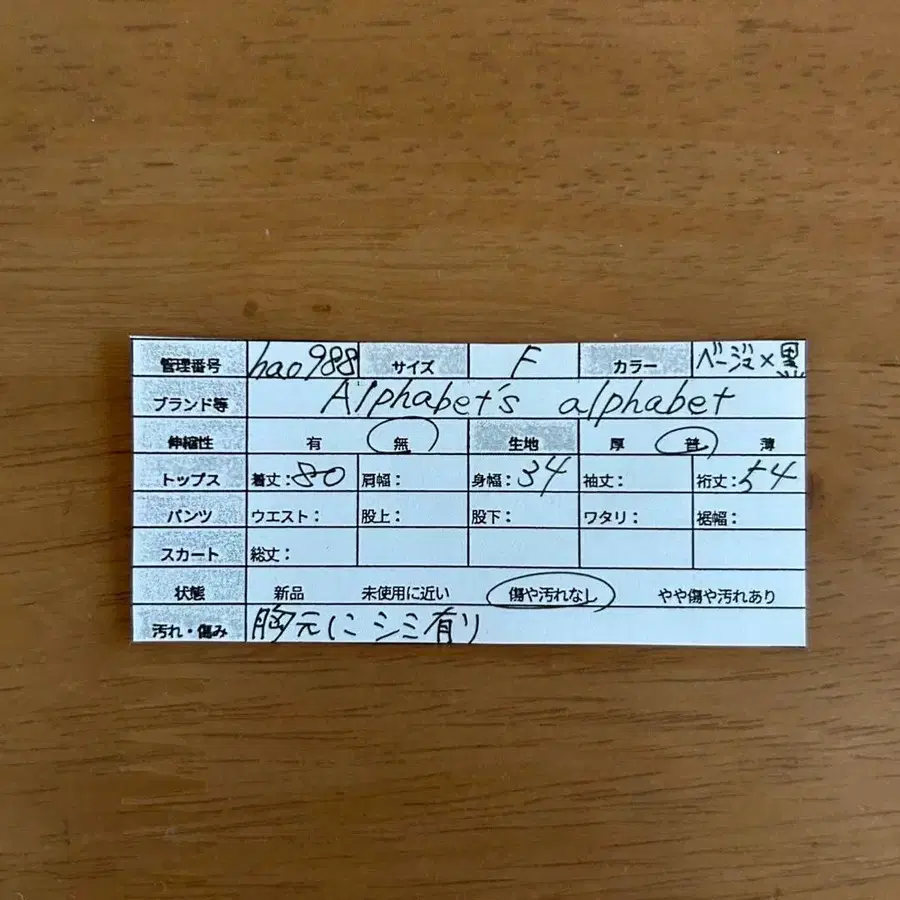 管理番号 hao988 サイズ F カラー ベージュ×黒
ブランド等 Alphabet's alphabet
伸縮性 有 無 生地 厚 普 薄
トップス 着丈:80 肩幅: 身幅:34 袖丈: 裄丈:54
パンツ ウエスト: 股上: 股下: ワタリ: 裾幅:
スカート 総丈:
状態 新品 未使用に近い 傷や汚れなし やや傷や汚れあり
汚れ・傷み 胸元にシミ有り